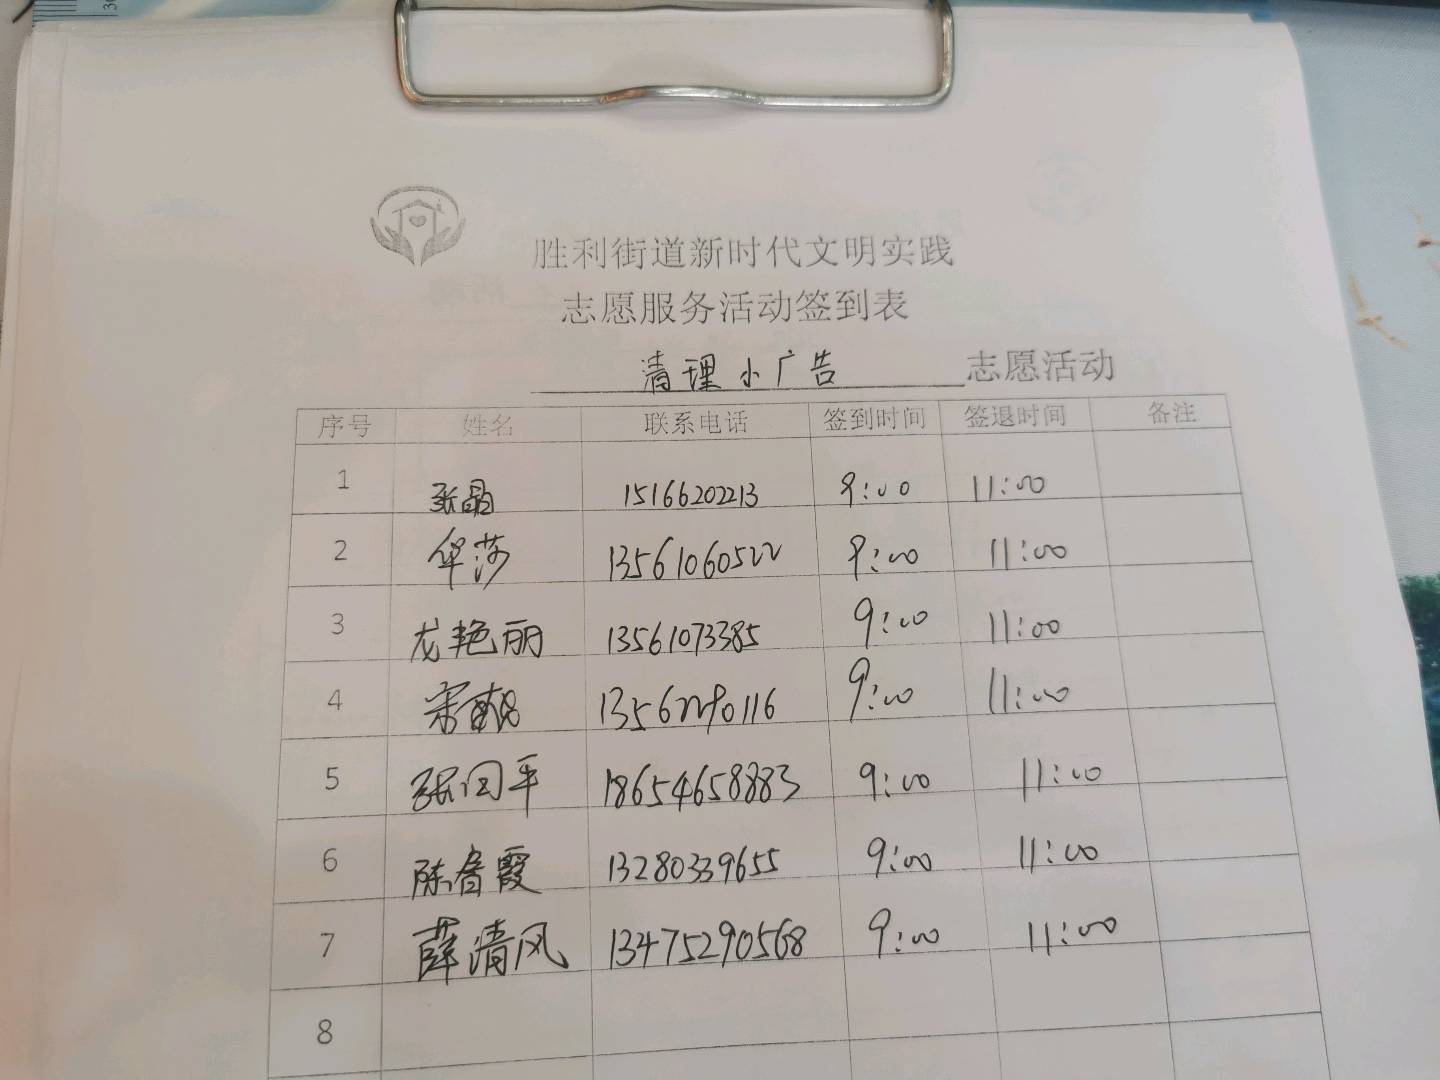 胜利街道新时代文明实践
志愿服务活动签到表
清理小广告 志愿活动
序号 姓名 联系电话 签到时间 签退时间 备注
1 张晶 15166202213 9:00 11:00
2 华莎 13561060522 9:00 11:00
3 龙艳丽 13561073385 9:00 11:00
4 宋 13562290116 9:00 11:00
5 张闰平 18654658883 9:00 11:00
6 陈春霞 13280339655 9:00 11:00
7 薛清风 13475290568 9:00 11:00
8